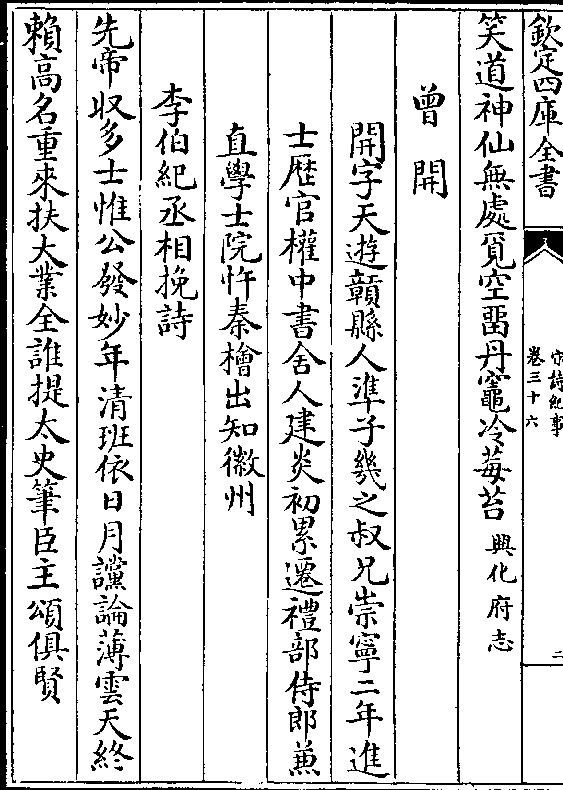 欽定四庫全書
宋詩紀事
卷三十六
二
笑道神仙無處覓空畱丹竈冷莓苔興化府志
曾開
開字天遊贛縣人準子幾之叔兄崇寧二年進
士歴官權中書舍人建炎初累遷禮部侍郎兼
直學士院忤秦檜出知徽州
李伯紀丞相挽詩
先帝収多士惟公發妙年清班依日月讜論薄雲天終
賴高名重來扶大業全誰提太史筆臣主頌俱賢